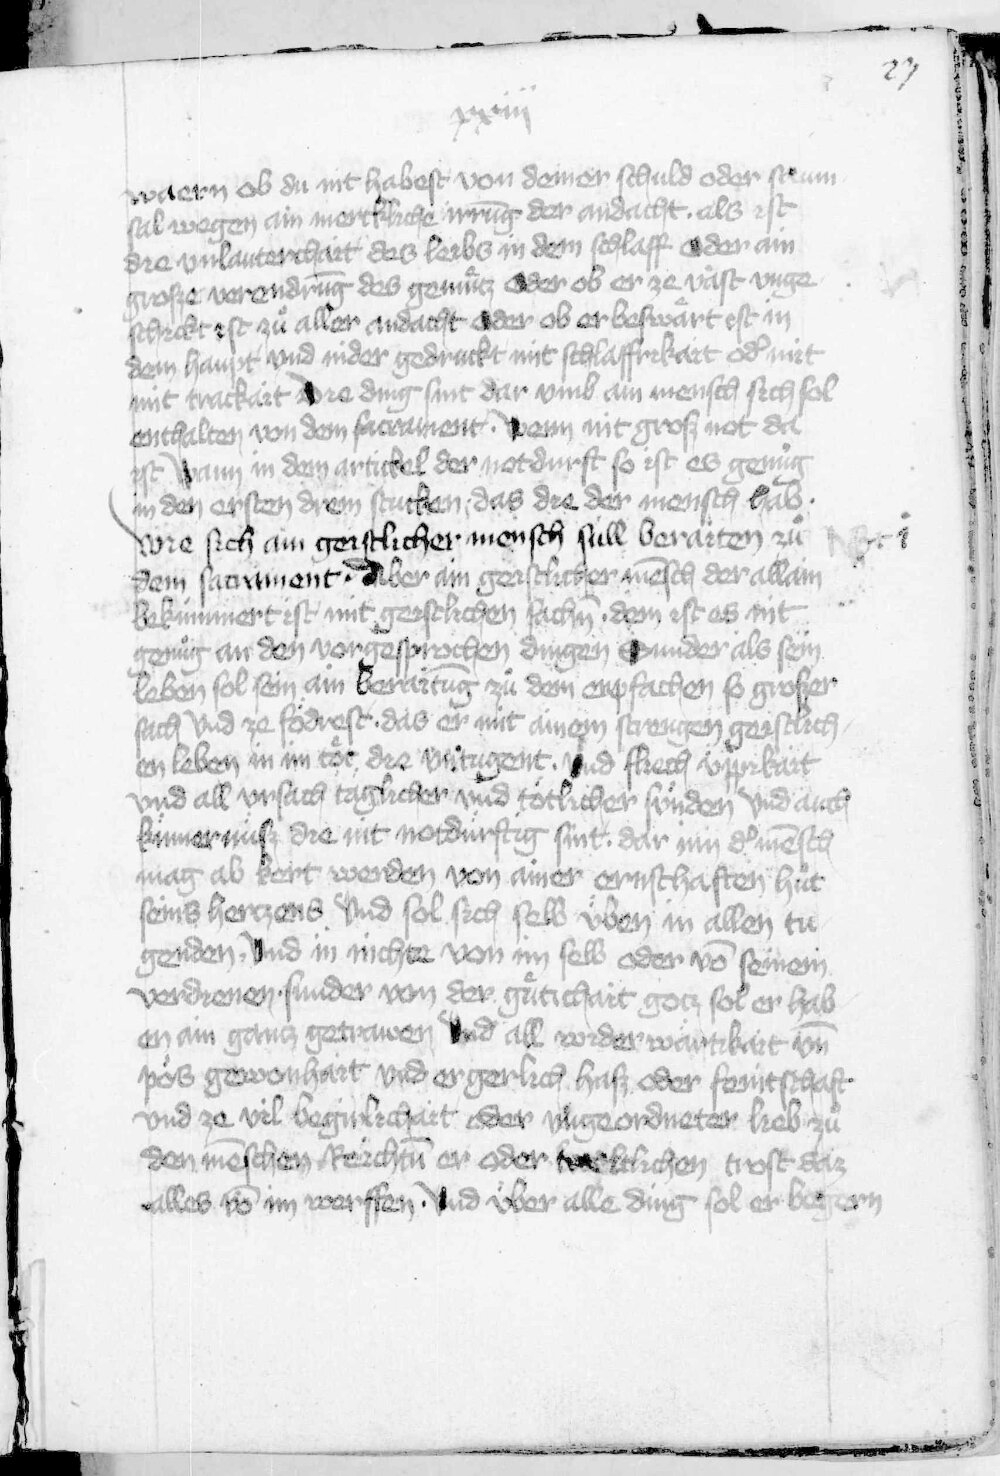 27
xxiij
waern ob du nit habest von deiner schuld oder saum
sal wegen ain merckliche irrūg der andacht . als ist
die vnlauterchait des leibs in dem schlaff Oder ain
grosze verendrūg des gemůtz Oder ob er ze vást vnge
schickt ist zů aller andacht Oder ob er beswárt ist in
dem haupt vnd nider gedruckt mit schlaffrikait od' nit
mit trackait Die ding sint dar vmb ain mensch sich sol
enthalten von dem sacrament . Wenn nit grosz not da
ist Wann in dem artickel der notdurft so ist es genůg
in den ersten drein stucken . das die der mensch hab .
Wie sich ain geistlicher mensch süll beraiten zů
dem sacrament . Aber ain geistlicher mēsch der allain
bekümmert ist mit geistlichen sachn̄ . dem ist es nit
genůg an den vorgesprochen dingen Sunder als sein
leben sol sein ain beraitūg zů dem enpfachen so groszer
sach Vnd ze fódrest . das er mit ainem strengen geistlich
en leben in im tót die vntugent . Vnd fliech üppikait
vnd all vrsach taglicher vnd tótlicher sünden Vnd auch
kümernüsz die nit notdürftig sint . dar inn d' mēsch
mag ab kert werden von ainer ernschaften hůt
seins hertzens Vnd sol sich selb üben in allen tu
genden . Vnd in nichte von im selb oder vō seinem
verdienen . sunder von der gůtichait gotz sol er hab
en ain gantz getrawen Vnd all widerwärtikait vn̄
pós gewonhait vnd ergerlich hasz oder feintschaft
vnd ze vil begirlichait oder vngeordneter lieb zů
den mēschen Reichtū er oder weltlichen trost daz
alles vō im werffen . Vnd über alle ding sol er begern